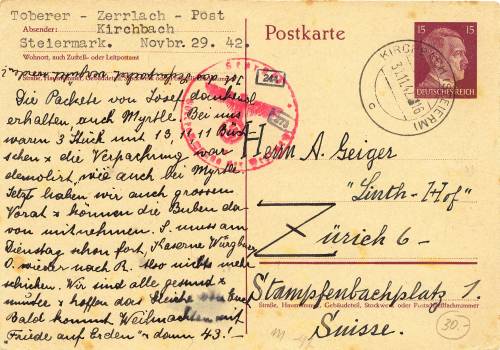 Toberer - Zerrlach - Post
Absender: Kirchbach
Steiermark. Novbr. 29. 42.
Wohnort, auch Zustell- oder Leitpostamt
Postkarte
15 15
DEUTSCHES REICH
KIRCHB
(STEIERM)
c
Die Packete von Josef dankend
erhalten auch Myrtle. Bei uns
waren 3 Stück mit 13, 11, 11 Büch
schen & die Verpackung war
demolirt, wie auch bei Myrtle
Jetzt haben wir auch grossen
Vorat & können die Buben da
von mitnehmen. S. muss am
Dienstag schon fort, Kaserne
O. wieder nach R. Also nichts mehr
schicken. Wir sind alle gesund &
munter & hoffen das Gleiche von Euch
Bald kommt Weihnachten mit
Friede auf Erden " dann 43!~
Herrn A. Geiger
"Linth-Hof"
Zürich 6-
Stampfenbachplatz 1.
Straße, Hausnummer, Gebäudeteil, Stockwerk oder Postschließfachnummer
Suisse.
30.-